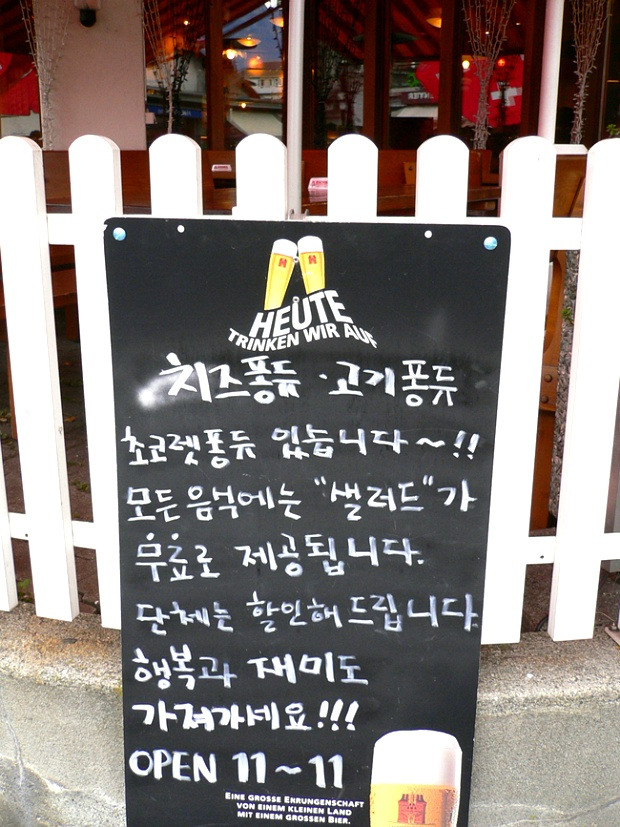 HEUTE
TRINKEN WIR AUF
치즈퐁듀 · 고기퐁듀
초코렛퐁듀 있습니다~!!
모든음식에는 "샐러드"가
무료로 제공됩니다.
단체는 할인해드립니다
행복과 재미도
가져가세요!!!
OPEN 11~11
EINE GROSSE ERRUNGENSCHAFT
VON EINEM KLEINEN LAND
MIT EINEM GROSSEN BIER.